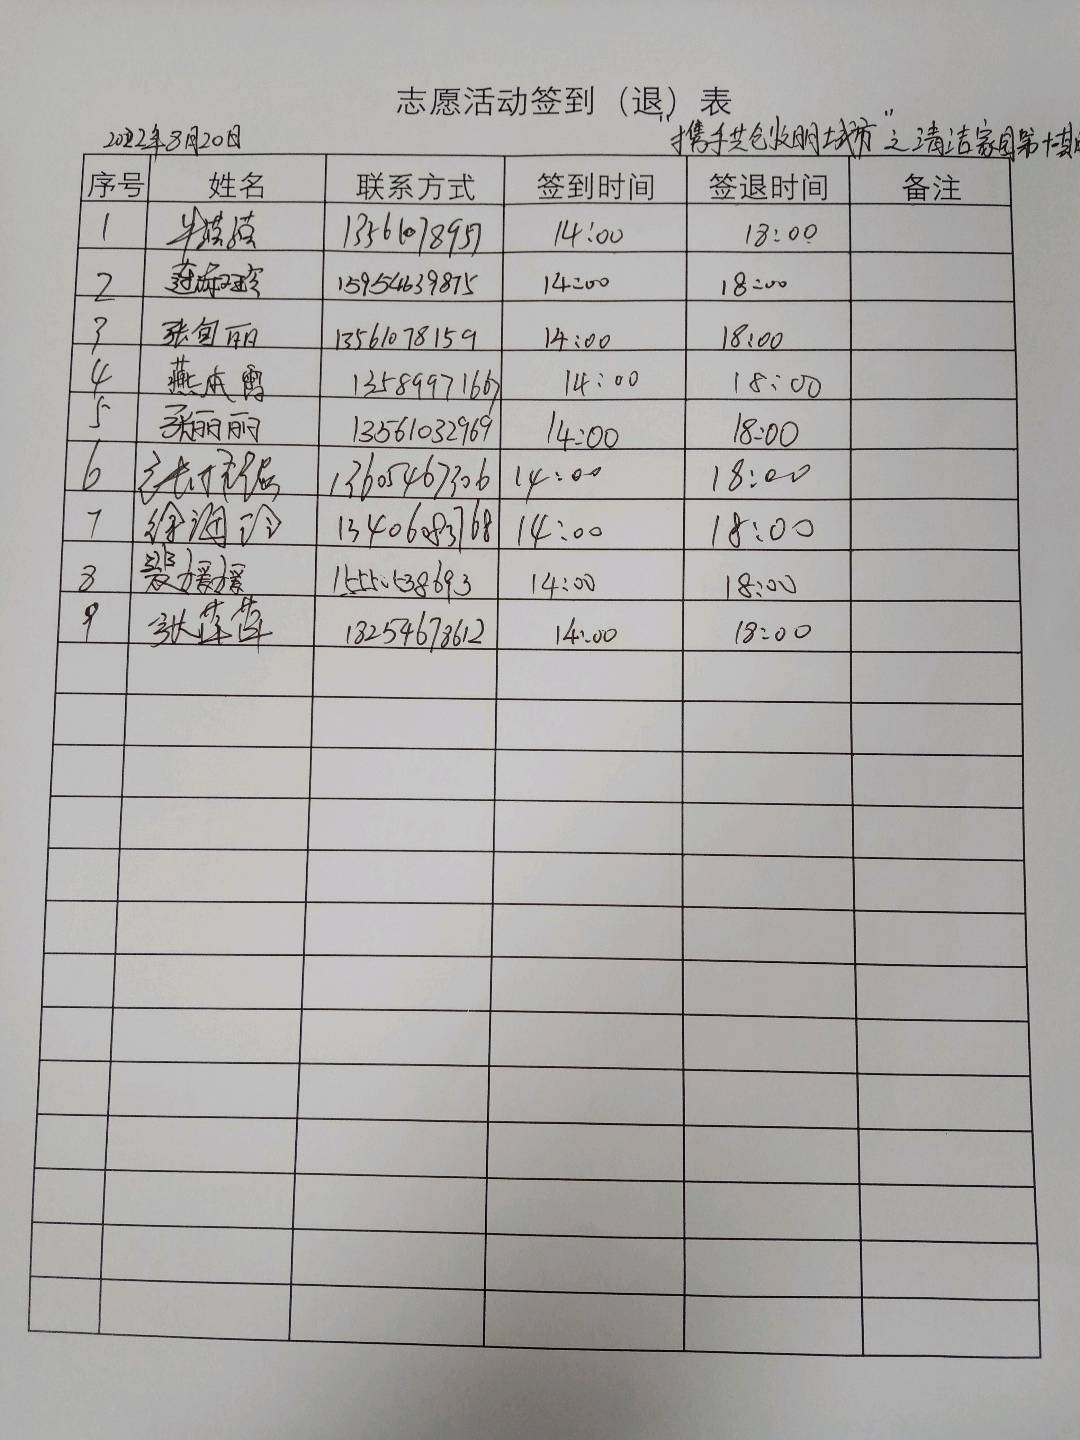 志愿活动签到（退）表
2022年8月20日
"携手共创文明城市"之清洁家园第十期
序号 姓名 联系方式 签到时间 签退时间 备注
1 13561078957 14:00 18:00
2 15954639875 14:00 18:00
3 丽 13561078159 14:00 18:00
4 燕本雪 13589971667 14:00 18:00
5 丽丽 13561032969 14:00 18:00
6 13605467306 14:00 18:00
7 徐润玲 13406083768 14:00 18:00
8 媛媛 14:00 18:00
9 萍萍 18254673612 14:00 18:00